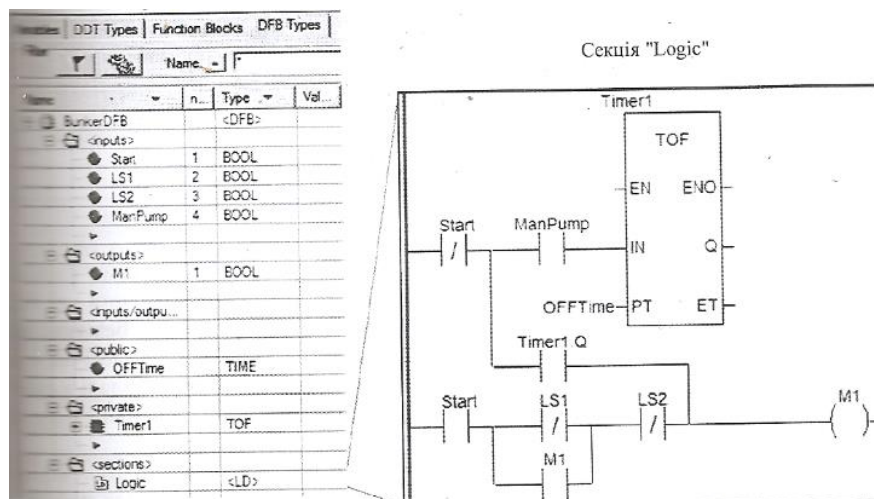 DDT Types
Function Blocks
DFB Types
Name
*
n...
Type
Val...
BunkerDFB
<DFB>
<inputs>
Start
1
BOOL
LS1
2
BOOL
LS2
3
BOOL
ManPump
4
BOOL
<outputs>
M1
1
BOOL
<inputs/outpu...
<public>
OFFTime
TIME
<private>
Timer1
TOF
<sections>
Logic
<LD>
Секція "Logic"
Timer1
TOF
EN
ENO
Start
ManPump
IN
Q
OFFTime
PT
ET
Timer1.Q
Start
LS1
LS2
M1
M1